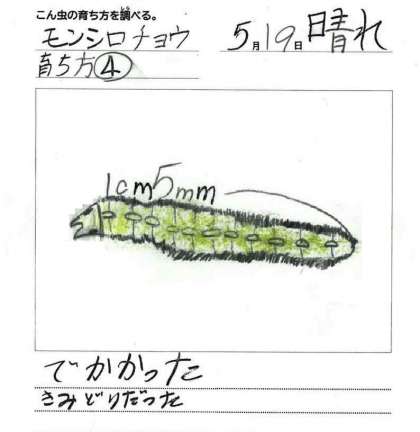 こん虫の育ち方を調べる。
モンシロチョウ
育ち方④
5月19日晴れ
1cm5mm
でかかった
きみどりだった